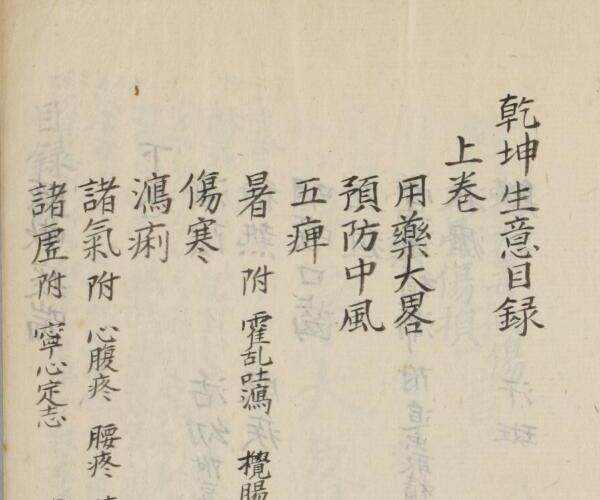 乾坤生意目録
上卷
用藥大畧
預防中風
五痺
暑 附 霍乱吐瀉 攪腸
傷寒
瀉痢
諸氣 附 心腹疼 腰疼
諸虛 附 寧心定志